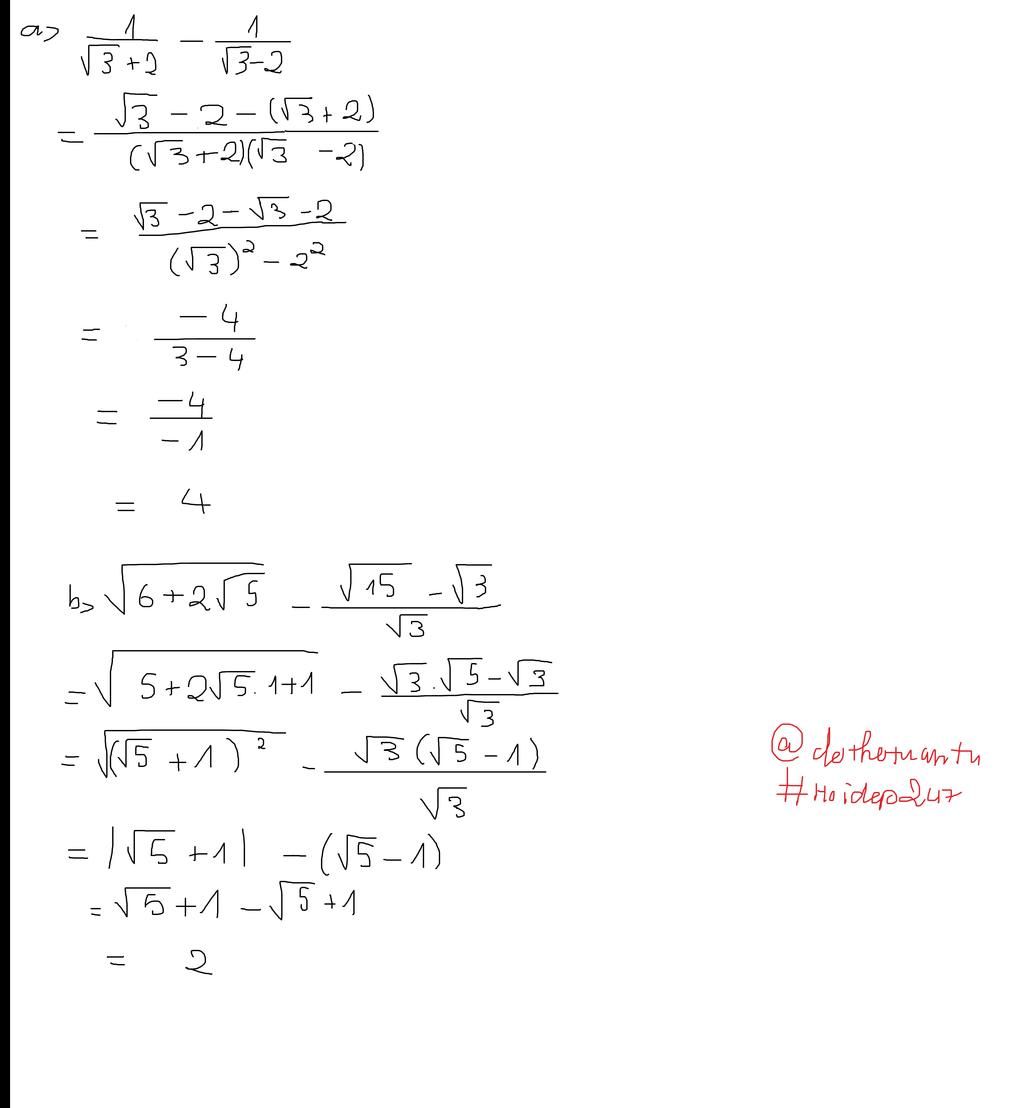 a> 1/(√3+2) − 1/(√3−2)
= (√3 − 2 − (√3 + 2))/((√3+2)(√3 −2))
= (√3 −2−√3 −2)/((√3)² − 2²)
= −4/(3−4)
= −4/−1
= 4
b> √(6+2√5) − (√15 − √3)/√3
= √(5+2√5.1+1) − (√3.√5−√3)/√3
= √((√5 +1)²) − (√3(√5 −1))/√3
= |√5 +1| − (√5 −1)
= √5 +1 −√5 +1
= 2
#Hoidap247